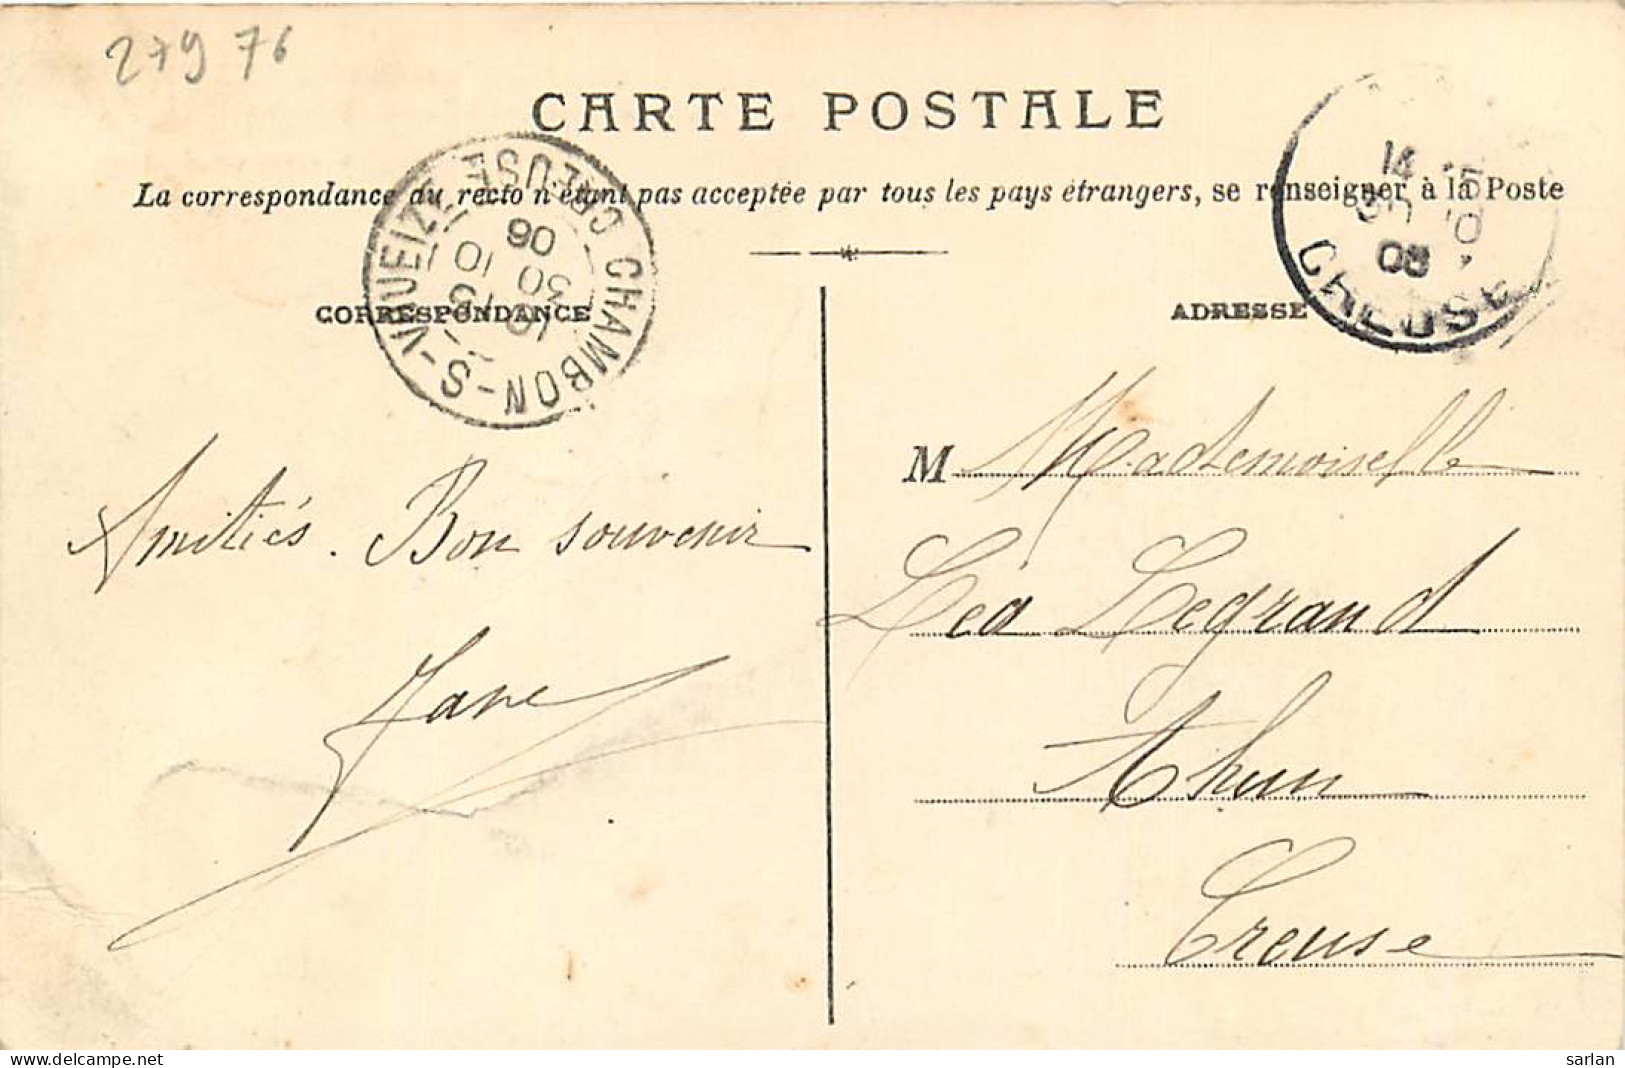 279 76
CARTE POSTALE
La correspondance au recto n'étant pas acceptée par tous les pays étrangers, se renseigner à la Poste
CHAMBON-S-VOUEIZE CREUSE
30 10
06
CREUSE
CORRESPONDANCE
ADRESSE
Amitiés. Bon souvenir
Jane
M Mademoiselle
Léa Legrand
Ahun
Creuse
sarlan